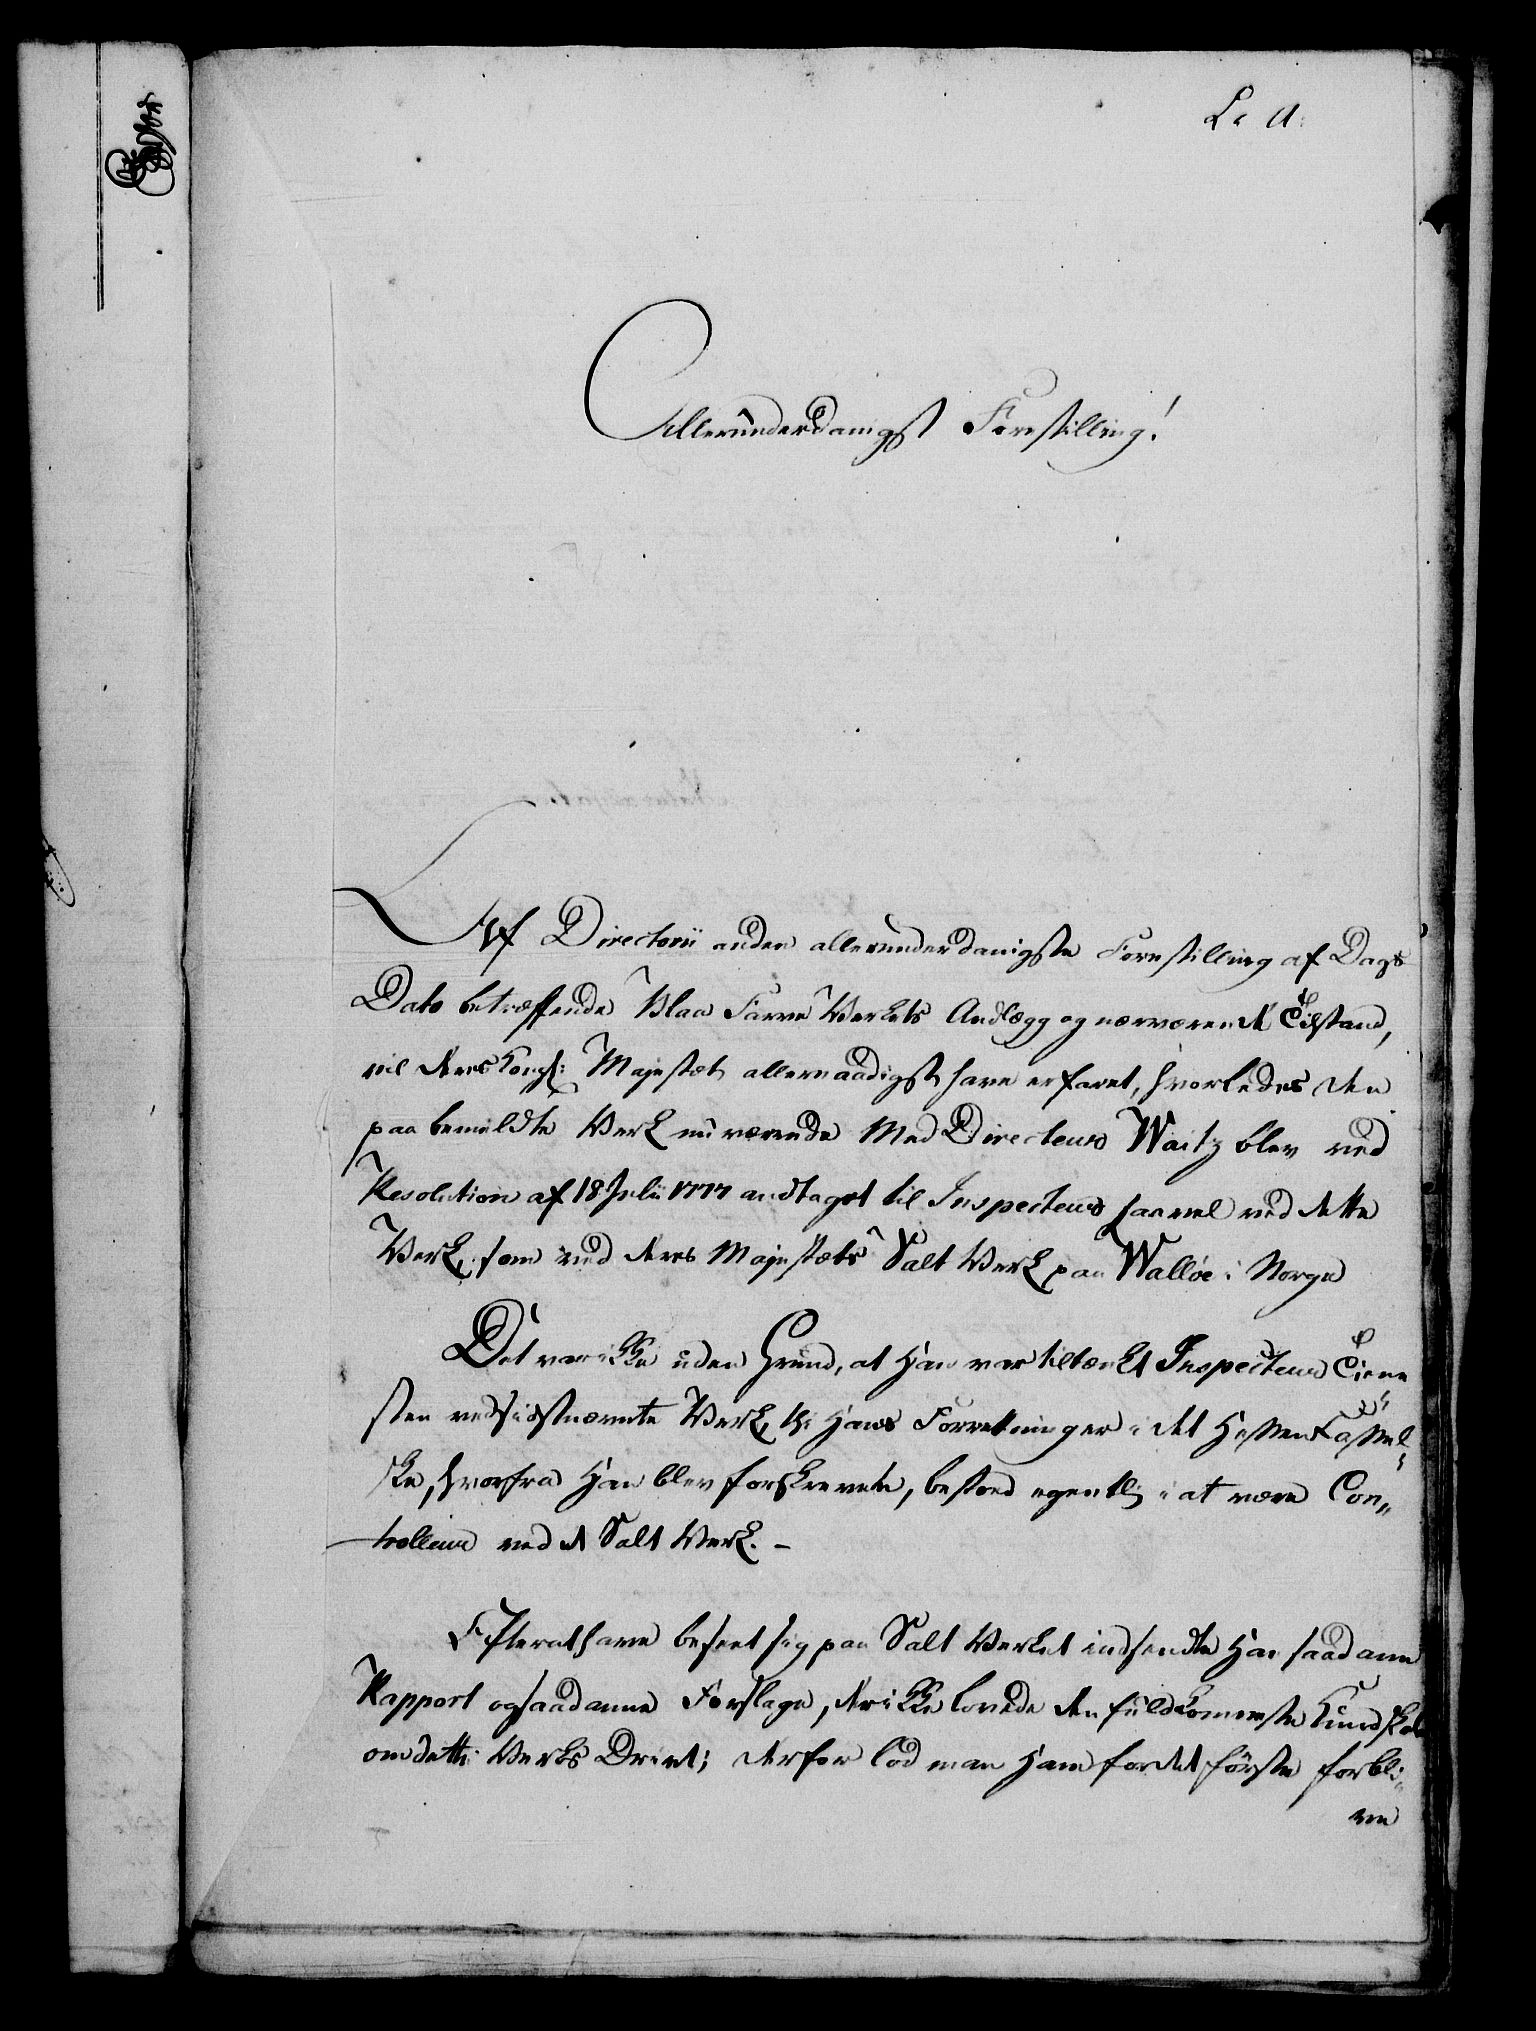 L. A:
Allerunderdanigst Forestilling!
Af Directorii anden allerunderdanigste Forestilling af Dags
Dato betræffende Blaa Farve Werkets Andlægg og nærværende Tilstand,
vil Deres Kongl: Majestæt allernaadigst have erfaret, hvorledes den
paa bemeldte Werk nu værende Med Directeur Waitz blev ved
Resolution af 18 Julii 1777 andtaget til Inspecteur saavel ved dette
Werk, som ved Deres Majestæts Salt Werk paa Walløe i Norge
Det var ikke uden Grund, at Han var tiltænkt Inspecteur Tiene
sten ved sidstnævnte Werk, thi Hans Forretninger i det Hessen Cassel-
ske, hvorfra Han blev forskreven, bestoed egentlig i at være Con„
trolleur ved et Salt Werk. –
Efterat have beseet sig paa Salt Werket indsendte Han saadanne
Rapport og saadanne Forslage, der ikke lovede den fuldkomneste Kundskab
om dette Werks Drivt; derfor lod man Ham for det første forbli„
ve